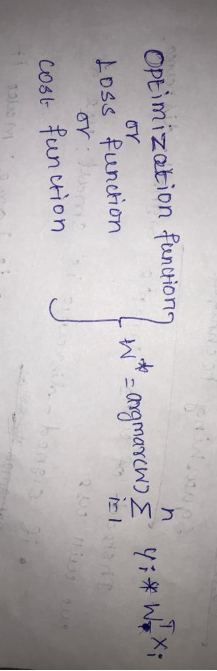 Optimization function
or
Loss function
or
cost function
W* = argmax(W) Σ yi * Wᵀ xi
n
i=1